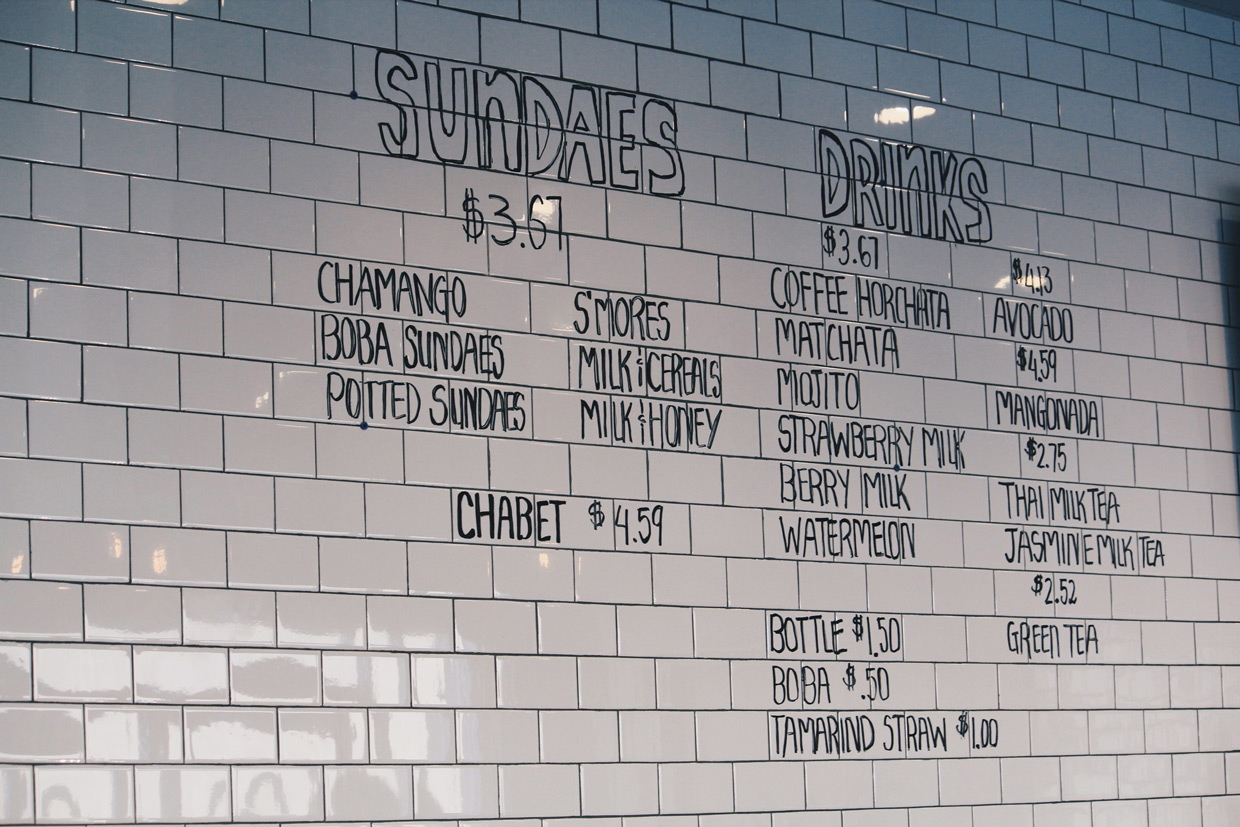 SUNDAES
$3.67
CHAMANGO
BOBA SUNDAES
POTTED SUNDAES
S'MORES
MILK & CEREALS
MILK & HONEY
CHABET $4.59
DRINKS
$3.67
COFFEE HORCHATA
MATCHATA
MOJITO
STRAWBERRY MILK
BERRY MILK
WATERMELON
$4.13
AVOCADO
$4.59
MANGONADA
$2.75
THAI MILK TEA
JASMINE MILK TEA
$2.52
GREEN TEA
BOTTLE $1.50
BOBA $.50
TAMARIND STRAW $1.00